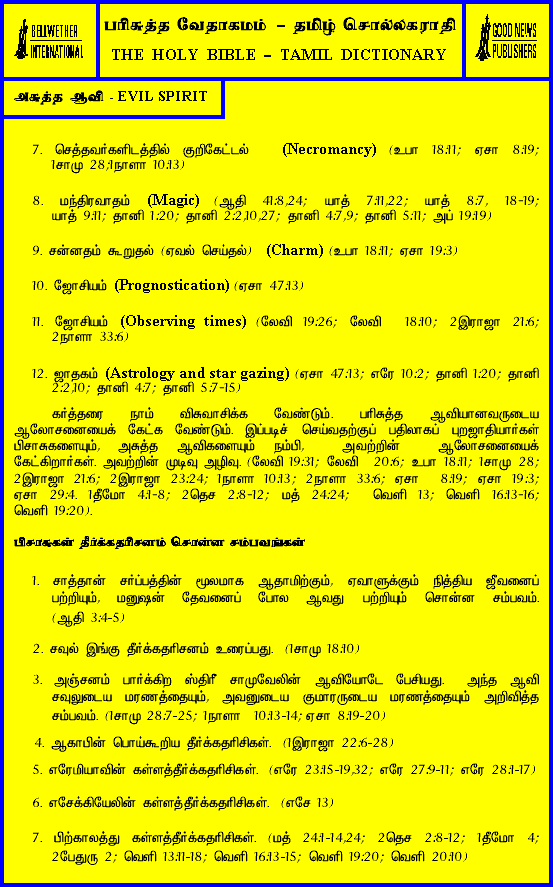 BELLWETHER
INTERNATIONAL
பரிசுத்த வேதாகமம் – தமிழ் சொல்லகராதி
THE HOLY BIBLE – TAMIL DICTIONARY
GOOD NEWS
PUBLISHERS
அசுத்த ஆவி - EVIL SPIRIT
7. செத்தவர்களிடத்தில் குறிகேட்டல் (Necromancy) (உபா 18:11; ஏசா 8:19;
1சாமு 28;1நாளா 10:13)
8. மந்திரவாதம் (Magic) (ஆதி 41:8,24; யாத் 7:11,22; யாத் 8:7, 18-19;
யாத் 9:11; தானி 1:20; தானி 2:2,10,27; தானி 4:7,9; தானி 5:11; அப் 19:19)
9. சன்னதம் கூறுதல் (ஏவல் செய்தல்) (Charm) (உபா 18:11; ஏசா 19:3)
10. ஜோசியம் (Prognostication) (ஏசா 47:13)
11. ஜோசியம் (Observing times) (லேவி 19:26; லேவி 18:10; 2இராஜா 21:6;
2நாளா 33:6)
12. ஜாதகம் (Astrology and star gazing) (ஏசா 47:13; எரே 10:2; தானி 1:20; தானி
2:2,10; தானி 4:7; தானி 5:7-15)
கர்த்தரை நாம் விசுவாசிக்க வேண்டும். பரிசுத்த ஆவியானவருடைய
ஆலோசனையைக் கேட்க வேண்டும். இப்படிச் செய்வதற்குப் பதிலாகப் புறஜாதியார்கள்
பிசாசுகளையும், அசுத்த ஆவிகளையும் நம்பி, அவற்றின் ஆலோசனையைக்
கேட்கிறார்கள். அவற்றின் முடிவு அழிவு. (லேவி 19:31; லேவி 20:6; உபா 18:11; 1சாமு 28;
2இராஜா 21:6; 2இராஜா 23:24; 1நாளா 10:13; 2நாளா 33:6; ஏசா 8:19; ஏசா 19:3;
ஏசா 29:4. 1தீமோ 4:1-8; 2தெச 2:8-12; மத் 24:24; வெளி 13; வெளி 16:13-16;
வெளி 19:20).
பிசாசுகள் தீர்க்கதரிசனம் சொன்ன சம்பவங்கள்
1. சாத்தான் சர்ப்பத்தின் மூலமாக ஆதாமிற்கும், ஏவாளுக்கும் நித்திய ஜீவனைப்
பற்றியும், மனுஷன் தேவனைப் போல ஆவது பற்றியும் சொன்ன சம்பவம்.
(ஆதி 3:4-5)
2. சவுல் இங்கு தீர்க்கதரிசனம் உரைப்பது. (1சாமு 18:10)
3. அஞ்சனம் பார்க்கிற ஸ்திரீ சாமுவேலின் ஆவியோடே பேசியது. அந்த ஆவி
சவுலுடைய மரணத்தையும், அவனுடைய குமாரருடைய மரணத்தையும் அறிவித்த
சம்பவம். (1சாமு 28:7-25; 1நாளா 10:13-14; ஏசா 8:19-20)
4. ஆகாபின் பொய்கூறிய தீர்க்கதரிசிகள். (1இராஜா 22:6-28)
5. எரேமியாவின் கள்ளத்தீர்க்கதரிசிகள். (எரே 23:15-19,32; எரே 27:9-11; எரே 28:1-17)
6. எசேக்கியேலின் கள்ளத்தீர்க்கதரிசிகள். (எசே 13)
7. பிற்காலத்து கள்ளத்தீர்க்கதரிசிகள். (மத் 24:1-14,24; 2தெச 2:8-12; 1தீமோ 4;
2பேதுரு 2; வெளி 13:11-18; வெளி 16:13-15; வெளி 19:20; வெளி 20:10)